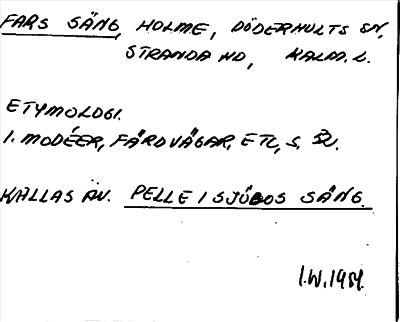 FARS SÄNG, HOLME, DÖDERHULTS SN,
STRANDA HD, KALM. L.
ETYMOLOGI.
I. MODÉER, FÄRDVÄGAR, ETC, S.
KALLAS AV. PELLE I SJÖBOS SÄNG.
I.W. 1954.